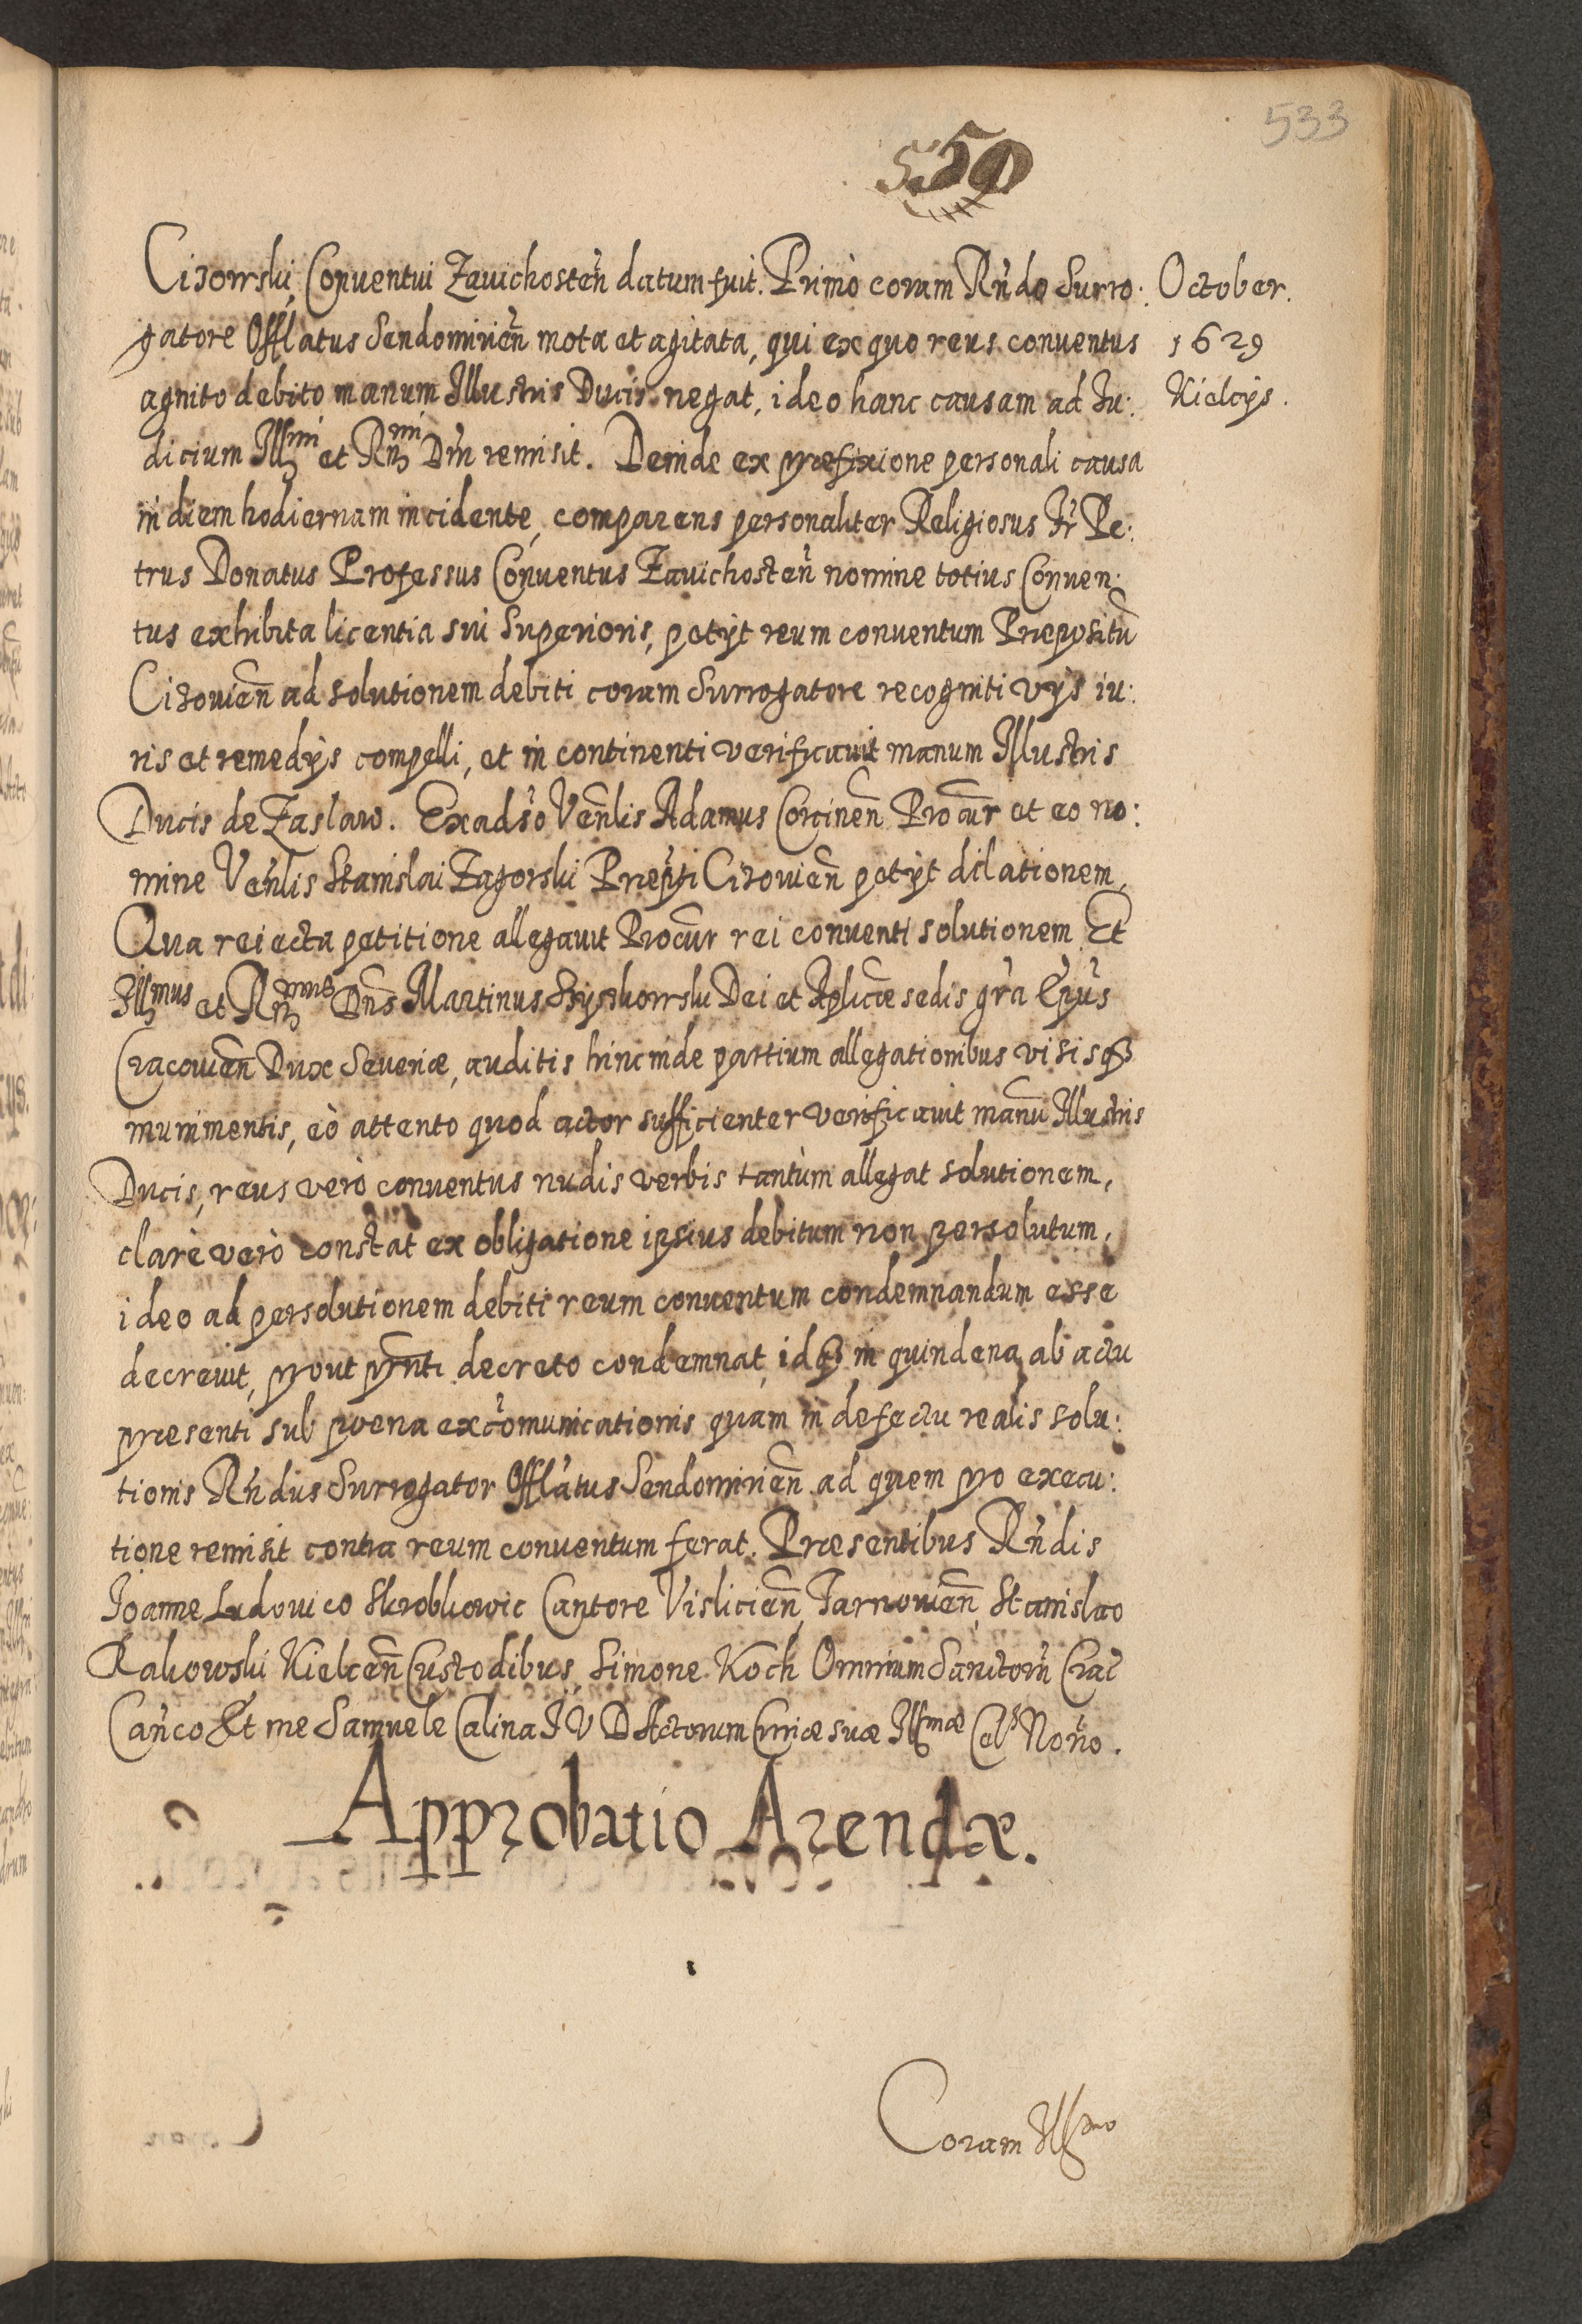 533
550
Cisowski, Conventui Zavichosten̄ datum fuit. Primò coram Rńdo Surro:
October.
gatore Offlatus Sendomirien̄ mota et agitata, qui ex quo reus conventus
1629
agnito debito manum Illustris Ducis negat, ideo hanc causam ad Iu:
Kielcÿs.
dicium Illmi et Rmi Dńi remisit. Deinde ex præfixione personali causa
in diem hodiernam incidente, comparens personaliter Religiosus Fr Pe:
trus Donatus Professus Conventus Zavichosten̄ nomine totius Conven:
tus exhibita licentia sui Superioris, petÿt reum conventum Præpositū
Cisouien̄ ad solutionem debiti coram Surrogatore recogniti vÿs iu:
ris et remedÿs compelli, et in continenti verificavit manum Illustris
Ducis de Zaslaw. Exadśo Venlis Adamus Corcinen̄ Procur et eo no:
mine Venlis Stanislai Zagorski Præpti Cisouien̄ petÿt dilationem,
Qua reiecta petitione allegavit Procur rei conventi solutionem Et
Illmus et Rmus Dns Martinus Szyszkowski Dei et Aplicæ sedis gra Epus
Cracouien̄ Dux Severiæ, auditis hincinde partium allegationibus visisqȝ
munimentis, eò attento quod actor sufficienter verificavit manū Illustris
Ducis, reus verò conventus nudis verbis tantùm allegat solutionem,
clarè verò constat ex obligatione ipsius debitum non persolutum,
ideo ad persolutionem debiti reum conventum condemnandum esse
decrevit, prout pńti decreto condemnat, idqȝ in quindena ab actu
præsenti sub poena excōmunicationis quam in defectu realis solu:
tionis Rńdus Surrogator Offlatus Sendomirien̄ ad quem pro execu:
tione remisit contra reum conventum ferat. Præsentibus Rńdis
Joanne Ludovico Skrobkowic Cantore Vislicien̄, Tarnouien̄, Stanislao
Rakowski Kielcen̄ Custodibus, Simone Koch Omnium Sanctorū Crac̄
Can̄co Et me Samuele Calina I V D Actorum Curiæ suæ Illmæ Cels Notrio.
Approbatio Arendæ.
Coram Illmo